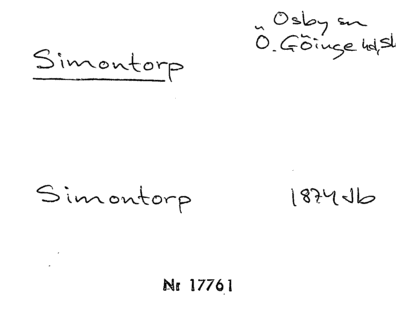 Simontorp
Osby sn
Ö. Göinge hd, Sk
Simontorp
1874 Jb
Nr 17761